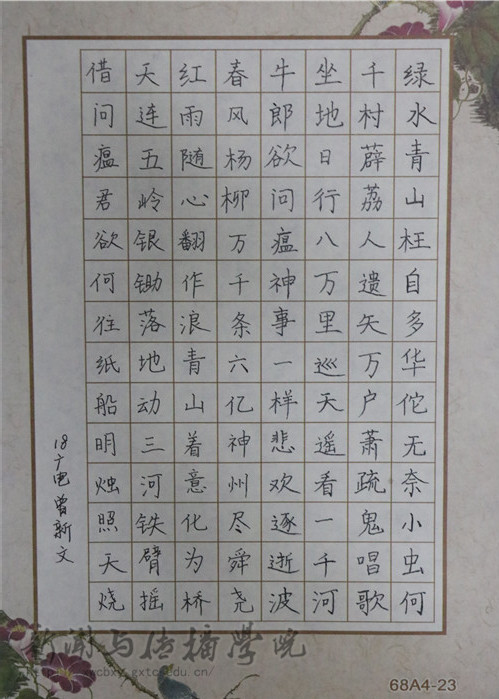 绿水青山枉自多华佗无奈小虫何
千村薜荔人遗矢万户萧疏鬼唱歌
坐地日行八万里巡天遥看一千河
牛郎欲问瘟神事一样悲欢逐逝波
春风杨柳万千条六亿神州尽舜尧
红雨随心翻作浪青山着意化为桥
天连五岭银锄落地动三河铁臂摇
借问瘟君欲何往纸船明烛照天烧
18广电 曾新文
新闻与传播学院
68A4-23